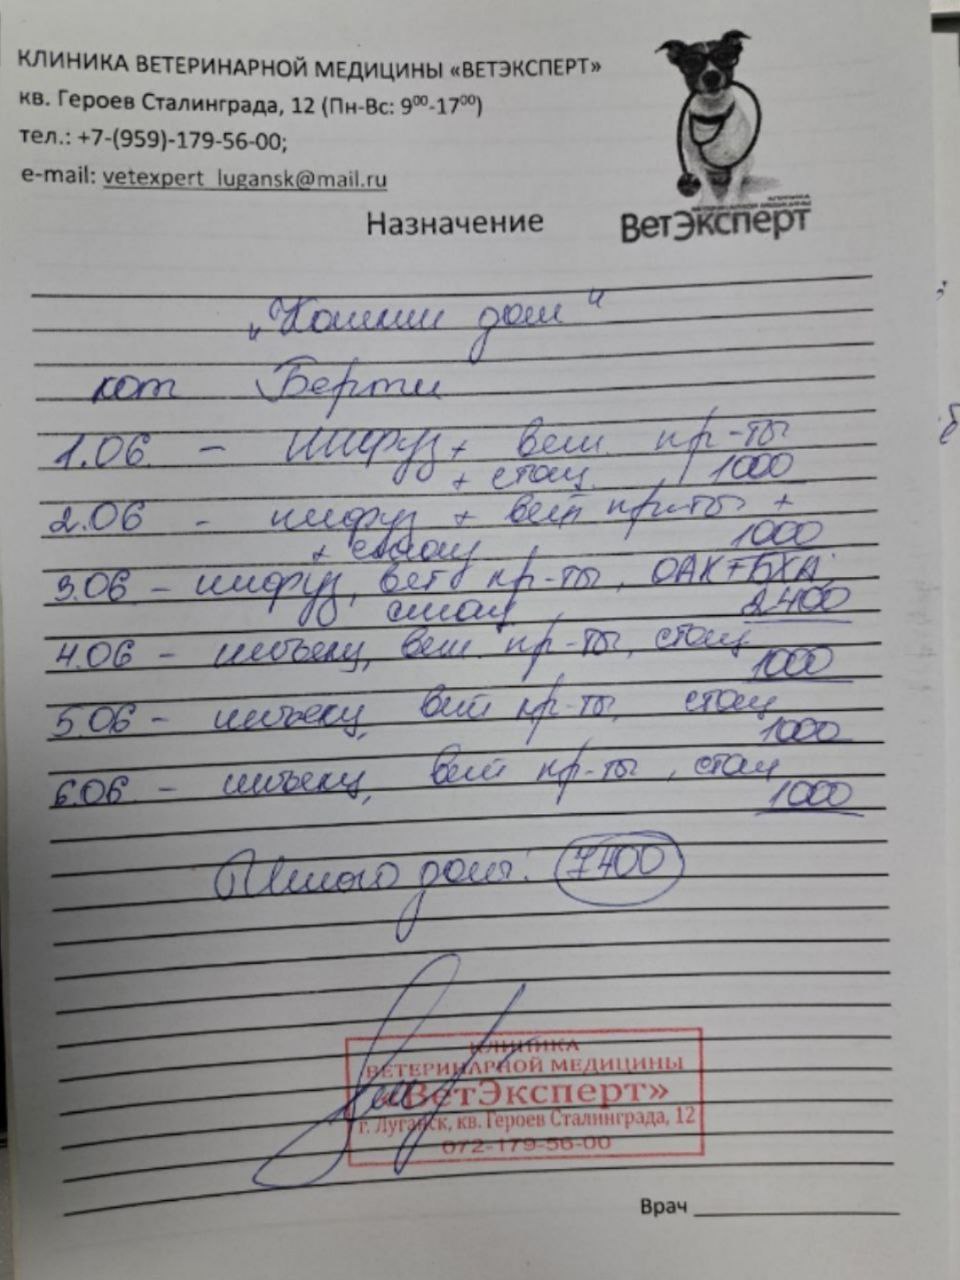 КЛИНИКА ВЕТЕРИНАРНОЙ МЕДИЦИНЫ «ВЕТЭКСПЕРТ»
кв. Героев Сталинграда, 12 (Пн-Вс: 9⁰⁰-17⁰⁰)
тел.: +7-(959)-179-56-00;
e-mail: vetexpert_lugansk@mail.ru
КЛИНИКА
ВЕТЕРИНАРНОЙ МЕДИЦИНЫ
ВетЭксперт
Назначение
"Кошкин дом"
кот Берти
1.06 - инфуз + вет. пр-ты
+ стац. 1000
2.06 - инфуз + вет пр-ты +
+ стац 1000
3.06 - инфуз, вет пр-ты, ОАК+БХА,
стац 2400
4.06 - инъекц, вет. пр-ты, стац
1000
5.06 - инъекц, вет пр-ты, стац
1000
6.06 - инъекц, вет пр-ты, стац
1000
Итого долг: 7400
КЛИНИКА
ВЕТЕРИНАРНОЙ МЕДИЦИНЫ
«ВетЭксперт»
г. Луганск, кв. Героев Сталинграда, 12
072-179-56-00
Врач